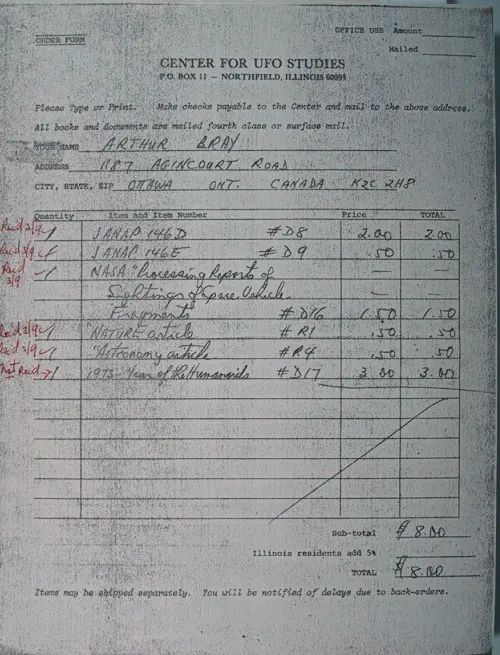 OFFICE USE Amount
ORDER FORM
Mailed
CENTER FOR UFO STUDIES
P.O. BOX 11 — NORTHFIELD, ILLINOIS 60093
Please Type or Print. Make checks payable to the Center and mail to the above address.
All books and documents are mailed fourth class or surface mail.
YOUR NAME ARTHUR BRAY
ADDRESS 1187 AGINCOURT ROAD
CITY, STATE, ZIP OTTAWA ONT. CANADA K2C 2H8
Quantity Item and Item Number Price TOTAL
Rec'd 3/9 ✓ 1 JANAP 146D #D8 2.00 2.00
Rec'd 3/9 ✓ 1 JANAP 146E #D9 .50 .50
Rec'd 3/9 ✓ 1 NASA "Processing Reports of — —
Sightings of Space Vehicle — —
Fragments #D16 1.50 1.50
Rec'd 3/9 ✓ 1 "NATURE" article #R1 .50 .50
Rec'd 3/9 ✓ 1 "Astronomy article #R4 .50 .50
Not Rec'd → 1 1973 - Year of the Humanoids #D17 3.00 3.00
Sub-total $8.00
Illinois residents add 5%
TOTAL $8.00
Items may be shipped separately. You will be notified of delays due to back-orders.